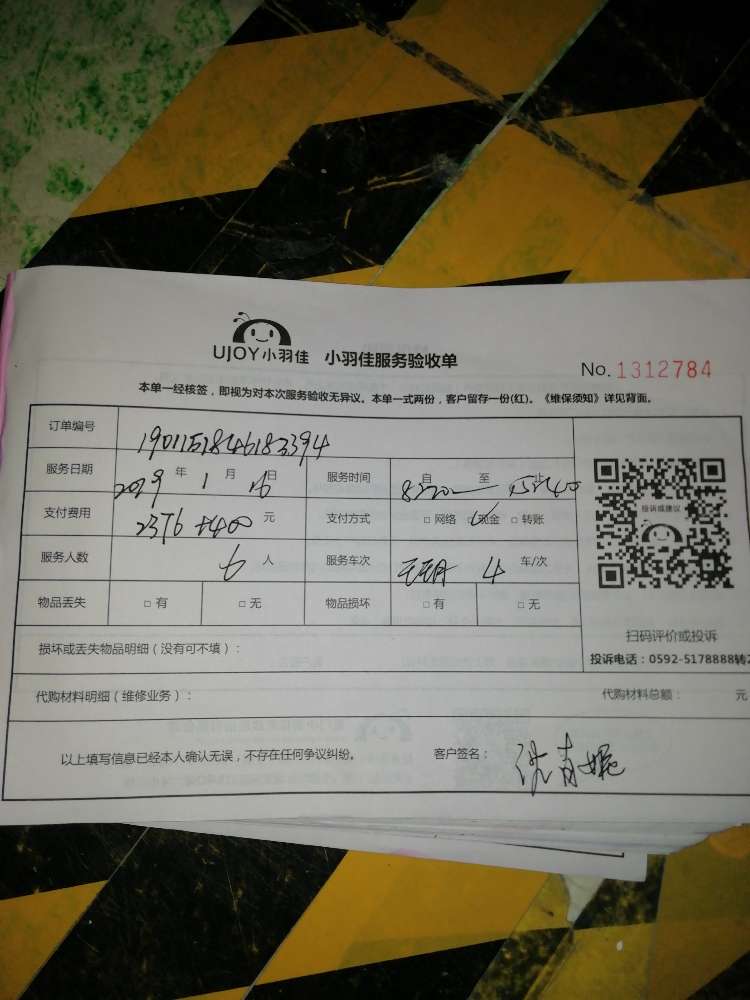 UJOY小羽佳 小羽佳服务验收单
No. 1312784
本单一经核签，即视为对本次服务验收无异议。本单一式两份，客户留存一份(红)。《维保须知》详见背面。
订单编号 1901151846183394
服务日期 2019 年 1 月 16 日 服务时间 自 8:20 至 15:40 止
支付费用 2376 +400 元 支付方式 □ 网络 ✓现金 □ 转账
服务人数 6 人 服务车次 4 车/次
物品丢失 □ 有 □ 无 物品损坏 □ 有 □ 无
投诉或建议
扫码评价或投诉
投诉电话：0592-5178888转2
损坏或丢失物品明细（没有可不填）：
代购材料明细（维修业务）： 代购材料总额： 元
以上填写信息已经本人确认无误，不存在任何争议纠纷。 客户签名：